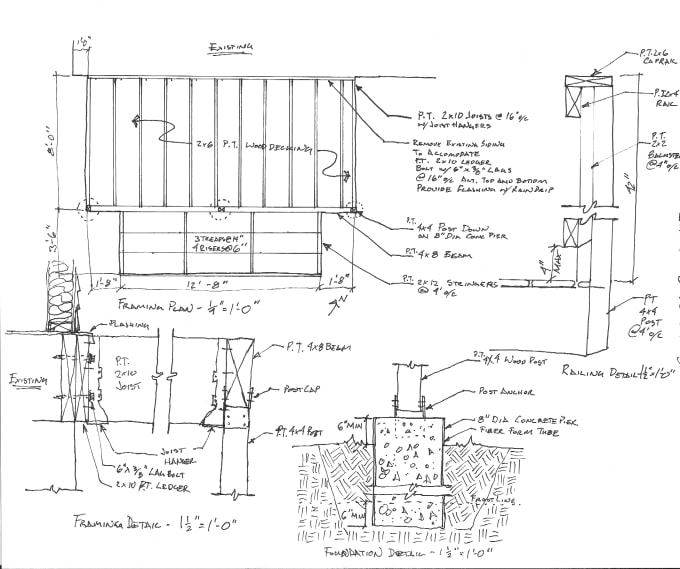 EXISTING
1'-0"
8'-0"
3'-6"
2x6 P.T. WOOD DECKING
P.T. 2x10 JOISTS @ 16" O/C
W/ JOIST HANGERS
REMOVE EXISTING SIDING
TO ACCOMODATE
P.T. 2x10 LEDGER
BOLT W/ 6" x 3/8" LAGS
@ 16" O/C ALT. TOP AND BOTTOM
PROVIDE FLASHING W/ RAIN DRIP
P.T.
4x4 POST DOWN
ON 8" DIA CONC PIER
P.T.
4x8 BEAM
3 TREADS @ 11"
4 RISERS @ 6"
P.T. 2x12 STRINGERS
@ 4' O/C
1'-8"
12'-8"
1'-8"
FRAMING PLAN - 1/4" = 1'-0"
N
P.T. 2x6
CAPRAIL
P.T. 2x4
RAIL
P.T.
2x2
@ 4" O/C
42"
4"
MAX
PT
4x4
POST
@ 4' O/C
RAILING DETAIL - 1 1/2" = 1'-0"
FLASHING
EXISTING
P.T.
2x10
JOIST
P.T. 4x8 BEAM
POST CAP
P.T. 4x4 POST
JOIST
HANGER
6" x 3/8" LAG BOLT
2x10 P.T. LEDGER
FRAMING DETAIL - 1 1/2" = 1'-0"
P.T. 4x4 WOOD POST
POST ANCHOR
6" MIN
8" DIA CONCRETE PIER
FIBER FORM TUBE
FROST LINE
6" MIN
FOUNDATION DETAIL - 1 1/2" = 1'-0"